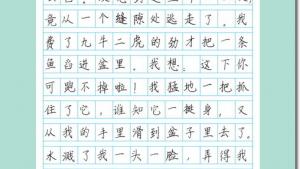 竟从一个缝隙处逃走了。我
费了九牛二虎的劲才把一条
鱼舀进盆里。我想:这下你
可跑不掉啦!我猛地一把抓
住了它,谁知它一挺身,又
从我的手里滑到盆子里去了。
水溅了我一头一脸,弄得我